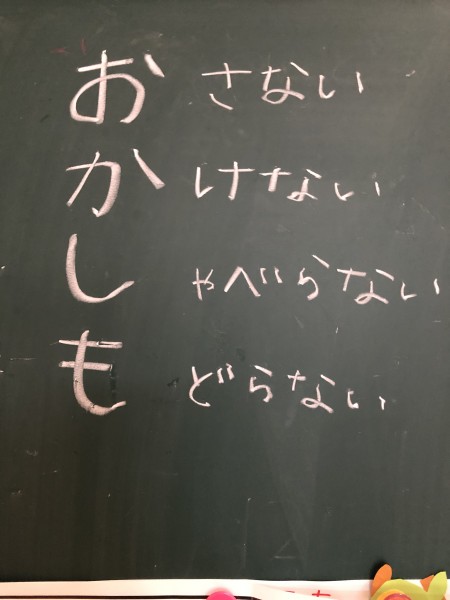 お さない
か けない
し ゃべらない
も どらない